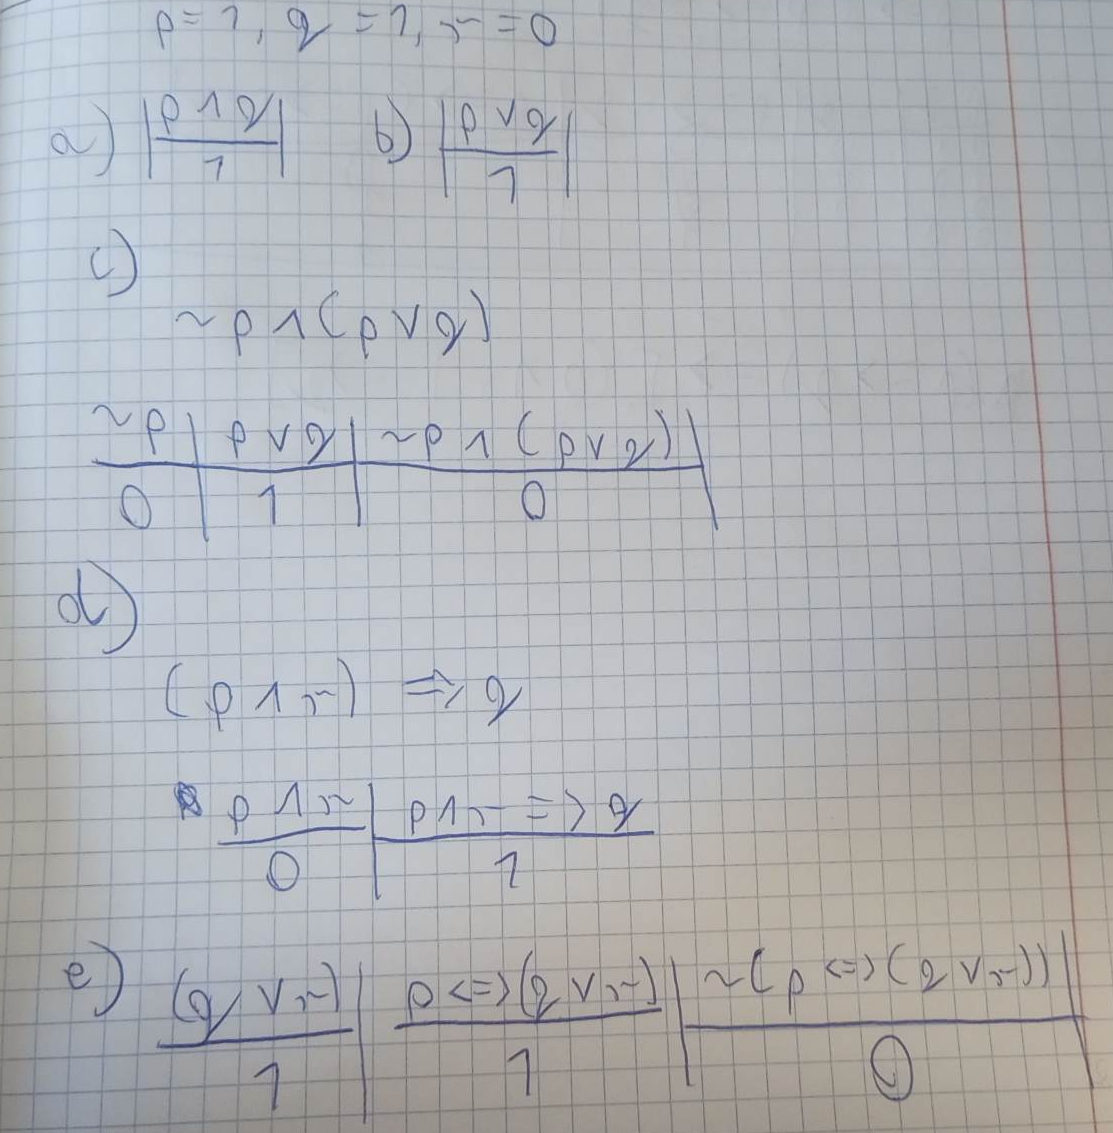 p=1, q=1, r=0
a) p ∧ q b) p ∨ q
1 1
c)
~p ∧ (p ∨ q)
~p p ∨ q ~p ∧ (p ∨ q)
0 1 0
d)
(p ∧ r) => q
p ∧ r p ∧ r => q
0 1
e) (q ∨ r) p <=> (q ∨ r) ~(p <=> (q ∨ r))
1 1 0